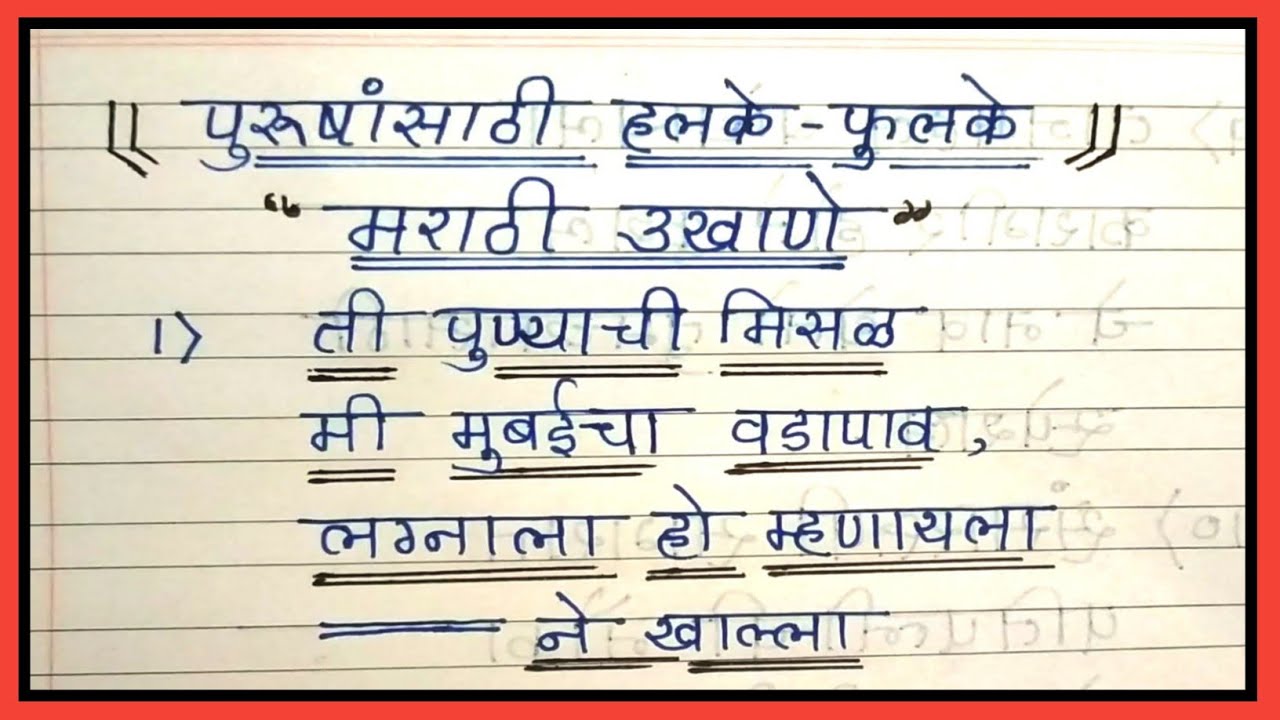 ॥ पुरूषांसाठी हलके - फुलके ॥
“ मराठी उखाणे ”
१> ती पुण्याची मिसळ
मी मुबईचा वडापाव,
लग्नाला हो म्हणायला
—— ने खाल्ला